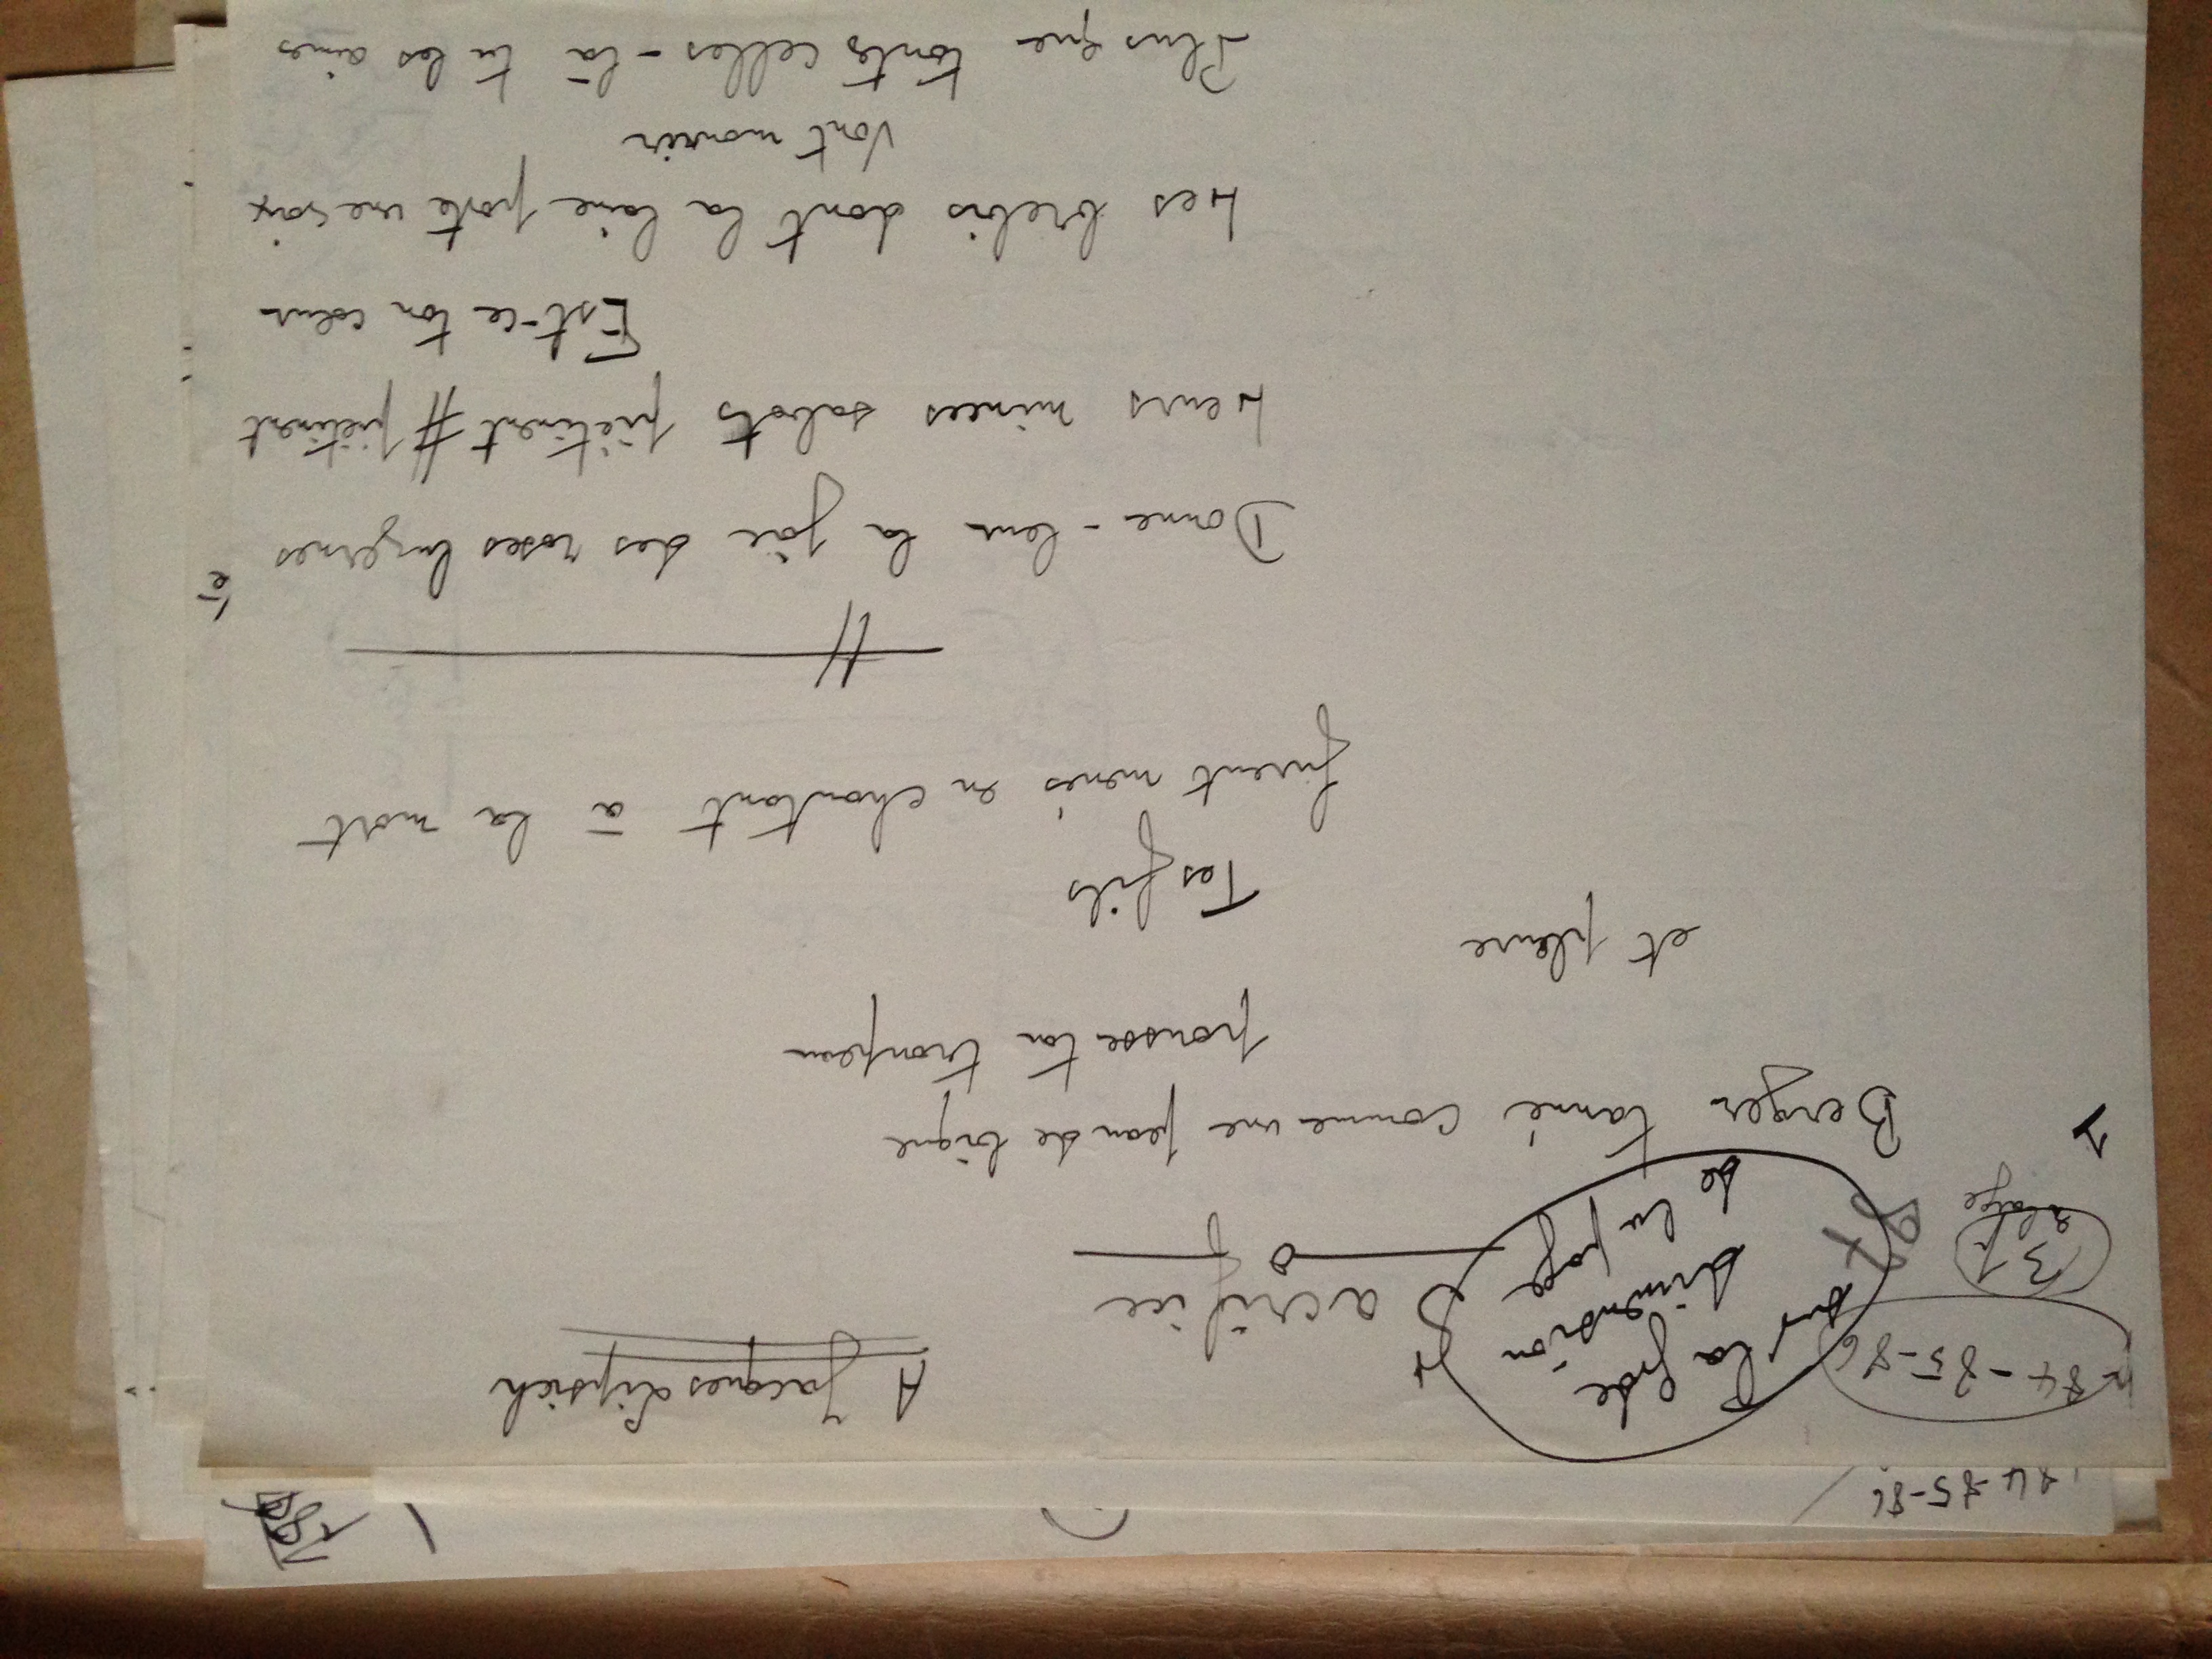 84-85-86
p 84-85-86
sur la gde
dimension
de la page
A Jacques Lipsich
Sacrifice
3 p
87
1
Berger tanné comme une peau de bique
pousse ton troupeau
et pleure
Tes fils
furent menés en chantant à la mort
Donne-leur la joie des roses luzernes
é
Leurs minces sabots piétinent # piétinent
Est-ce ton cœur
Les brebis dont la laine porte une voix
Vont mourir
Plus que toutes celles-là tu les aimes